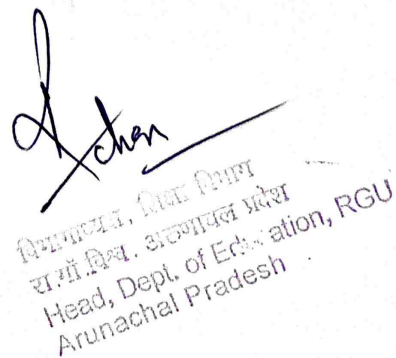 विभागाध्यक्ष, शिक्षा विभाग
रा.गाँ.विश्व. अरुणाचल प्रदेश
Head, Dept. of Education, RGU
Arunachal Pradesh